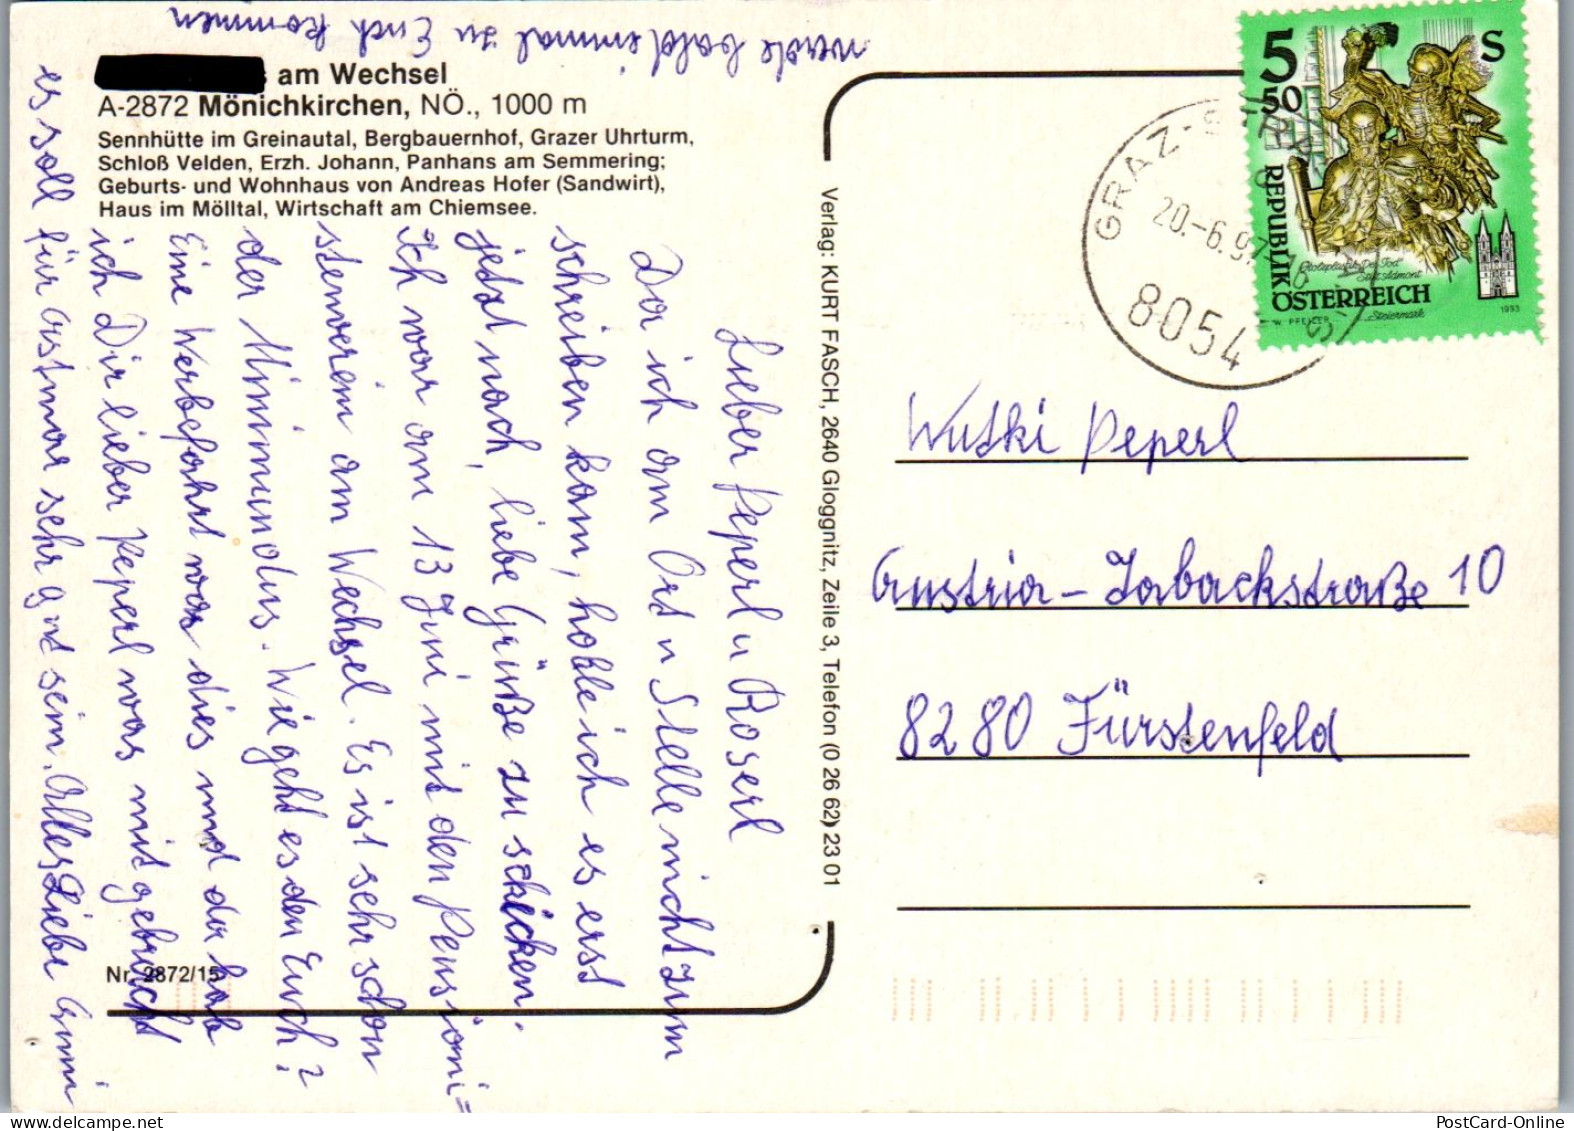 werde bald einmal zu Euch kommen
am Wechsel
A-2872 Mönichkirchen, NÖ., 1000 m
Sennhütte im Greinautal, Bergbauernhof, Grazer Uhrturm,
Schloß Velden, Erzh. Johann, Panhans am Semmering;
Geburts- und Wohnhaus von Andreas Hofer (Sandwirt),
Haus im Mölltal, Wirtschaft am Chiemsee.
Lieber Peperl u Roserl
Da ich am Ort u Stelle nicht zum
schreiben kam, hohle ich es erst
jetzt nach, liebe Grüße zu schicken.
Ich war am 13 Juni mit den Pensioni=
stenverein am Wechsel. Es ist sehr schön
der Minimundus. Wie geht es den Euch?
Eine Werbefahrt war dies und da hab
ich Dir lieber Peperl was mitgebracht
es soll für Asthma sehr gut sein. Alles Liebe
Nr. 2872/15
Verlag: KURT FASCH, 2640 Gloggnitz, Zeile 3, Telefon (0 26 62) 23 01
GRAZ-
20.-6.97
8054
5
50
S
REPUBLIK
ÖSTERREICH
Stift Admont
Steiermark
W. PFEILER
1993
Wutki Peperl
Austria-Tabackstraße 10
8280 Fürstenfeld
PostCard-Online
www.delcampe.net